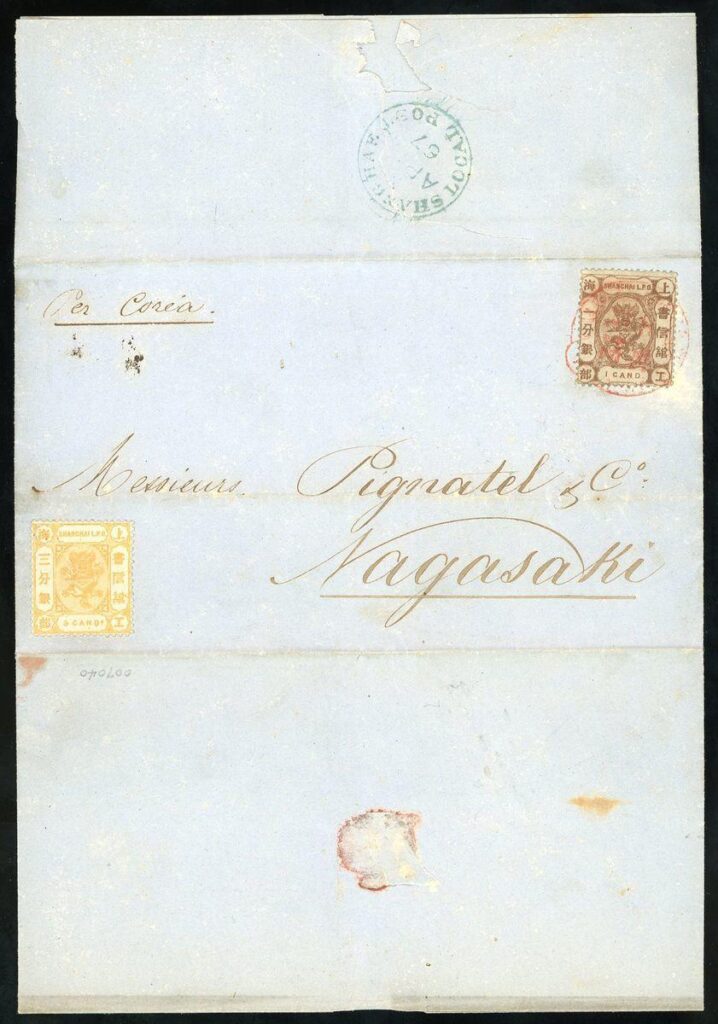 SHANGHAE LOCAL POST
67
Per Coréa.
SHANGHAI L.P.O.
上海
書信館
一分銀
工部
1 CAND.
Messieurs Pignatel & Co.
Nagasaki
SHANGHAI L.P.O.
上海
書信館
三分銀
工部
3 CANDs
007040